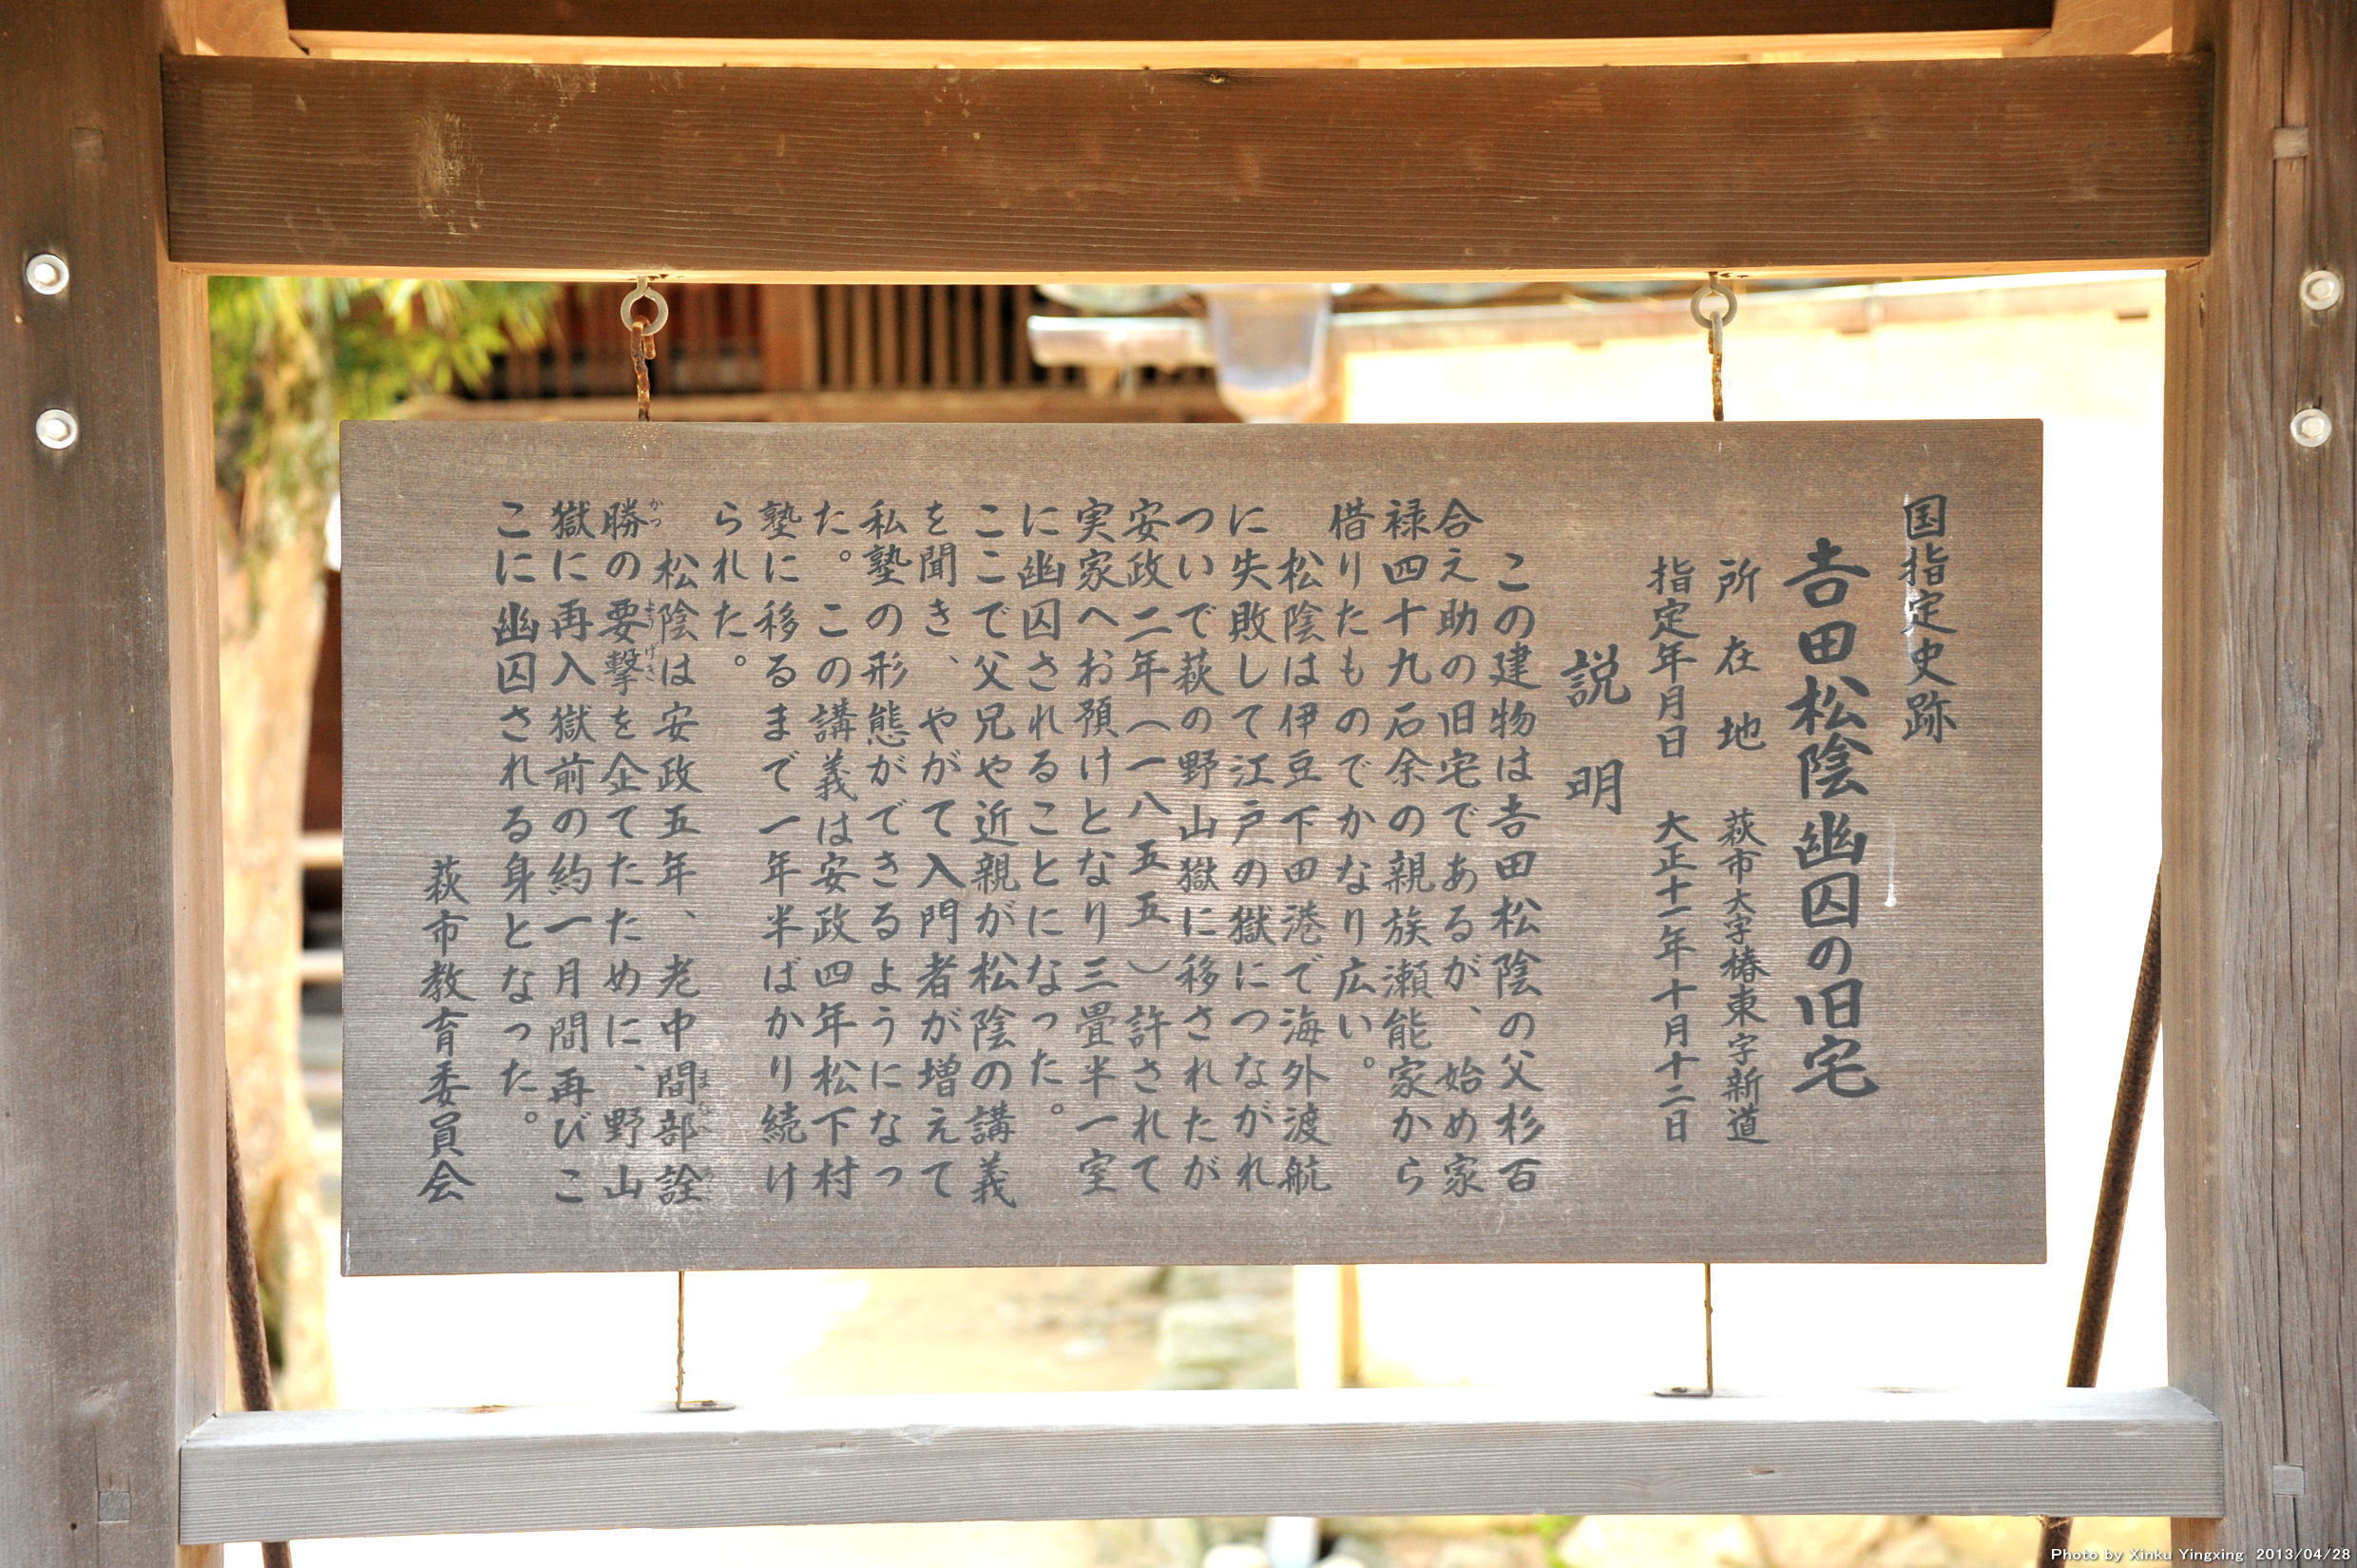 国指定史跡
吉田松陰幽囚の旧宅
所在地 萩市大字椿東字新道
指定年月日 大正十一年十月十二日
説明
この建物は吉田松陰の父杉百
合え助の旧宅であるが、始め家
禄四十九石余の親族瀬能家から
借りたものでかなり広い。
松陰は伊豆下田港で海外渡航
に失敗して江戸の獄につながれ
ついで萩の野山獄に移されたが
安政二年(一八五五)許されて
実家へお預けとなり三畳半一室
に幽囚されることになった。
ここで父兄や近親が松陰の講義
を聞き、やがて入門者が増えて
私塾の形態ができるようになっ
た。この講義は安政四年松下村
塾に移るまで一年半ばかり続け
られた。
松陰は安政五年、老中間部詮
勝の要撃を企てたために、野山
獄に再入獄前の約一月間再びこ
こに幽囚される身となった。
萩市教育委員会
Photo by Xinku Yingxing 2013/04/28